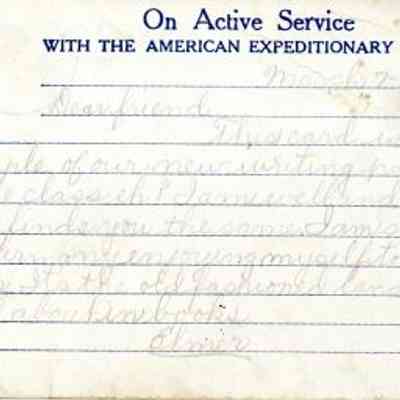 On Active Service
WITH THE AMERICAN EXPEDITIONARY
March 2
Dear friend
This card is
ple of our new writing pa
class eh! I am well and
finds you the same. I am
enjoying myself to
its the old fashioned
about in books
Elmer